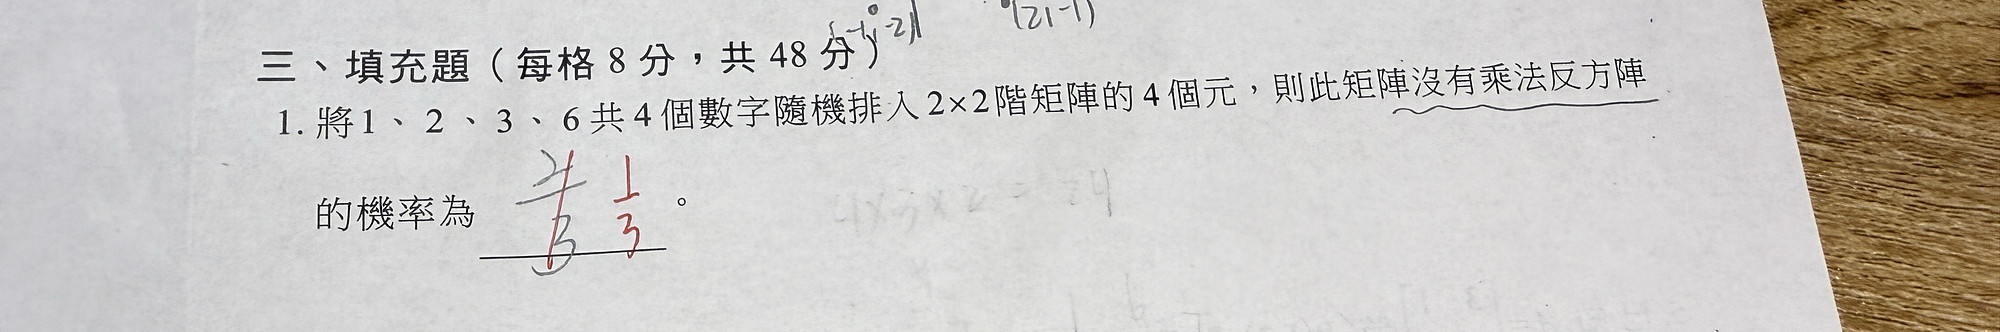 (-1,-2) (2,-1)
三、填充題（每格 8 分，共 48 分）
1. 將1、2、3、6共4個數字隨機排入2×2階矩陣的4個元，則此矩陣沒有乘法反方陣
的機率為 2/3 1/3 。
4×3×2=24